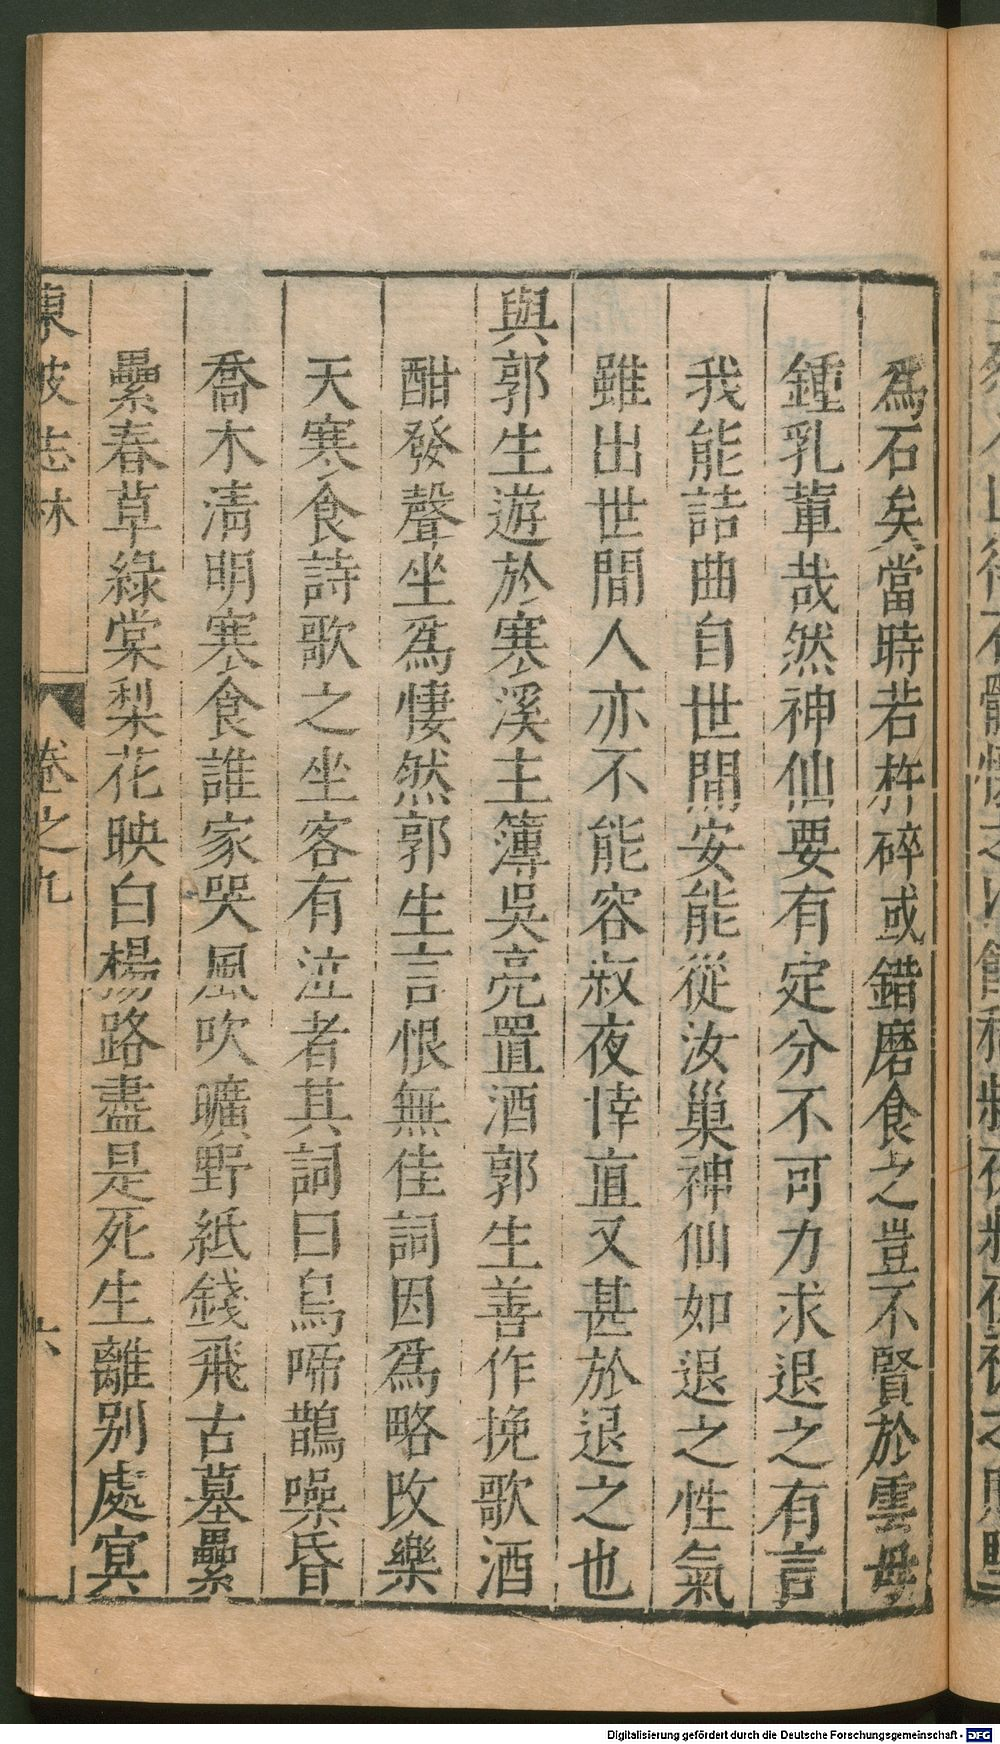 爲石矣當時若杵碎或錯磨食之豈不賢於雲母
鍾乳軰哉然神仙要有定分不可力求退之有言
我能詰曲自世間安能從汝巢神仙如退之性氣
雖出世間人亦不能容叔夜悻直又甚於退之也
與郭生遊於寒溪主簿吳亮置酒郭生善作挽歌酒
酣發聲坐爲悽然郭生言恨無佳詞因爲略改樂
天寒食詩歌之坐客有泣者其詞曰烏啼鵲噪昏
喬木清明寒食誰家哭風吹曠野紙錢飛古墓纍
纍春草綠棠梨花映白楊路盡是死生離别處㝠
東坡志林
卷之九
六
Digitalisierung gefördert durch die Deutsche Forschungsgemeinschaft - DFG